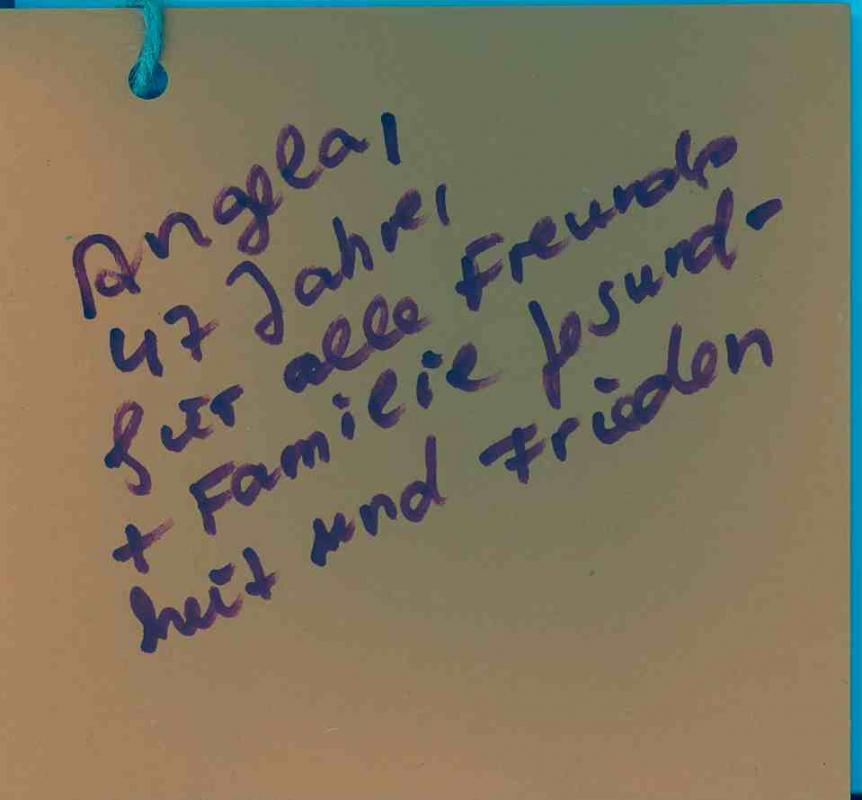 Angela,
47 Jahre,
für alle Freunde
+ Familie Gesund-
heit und Frieden